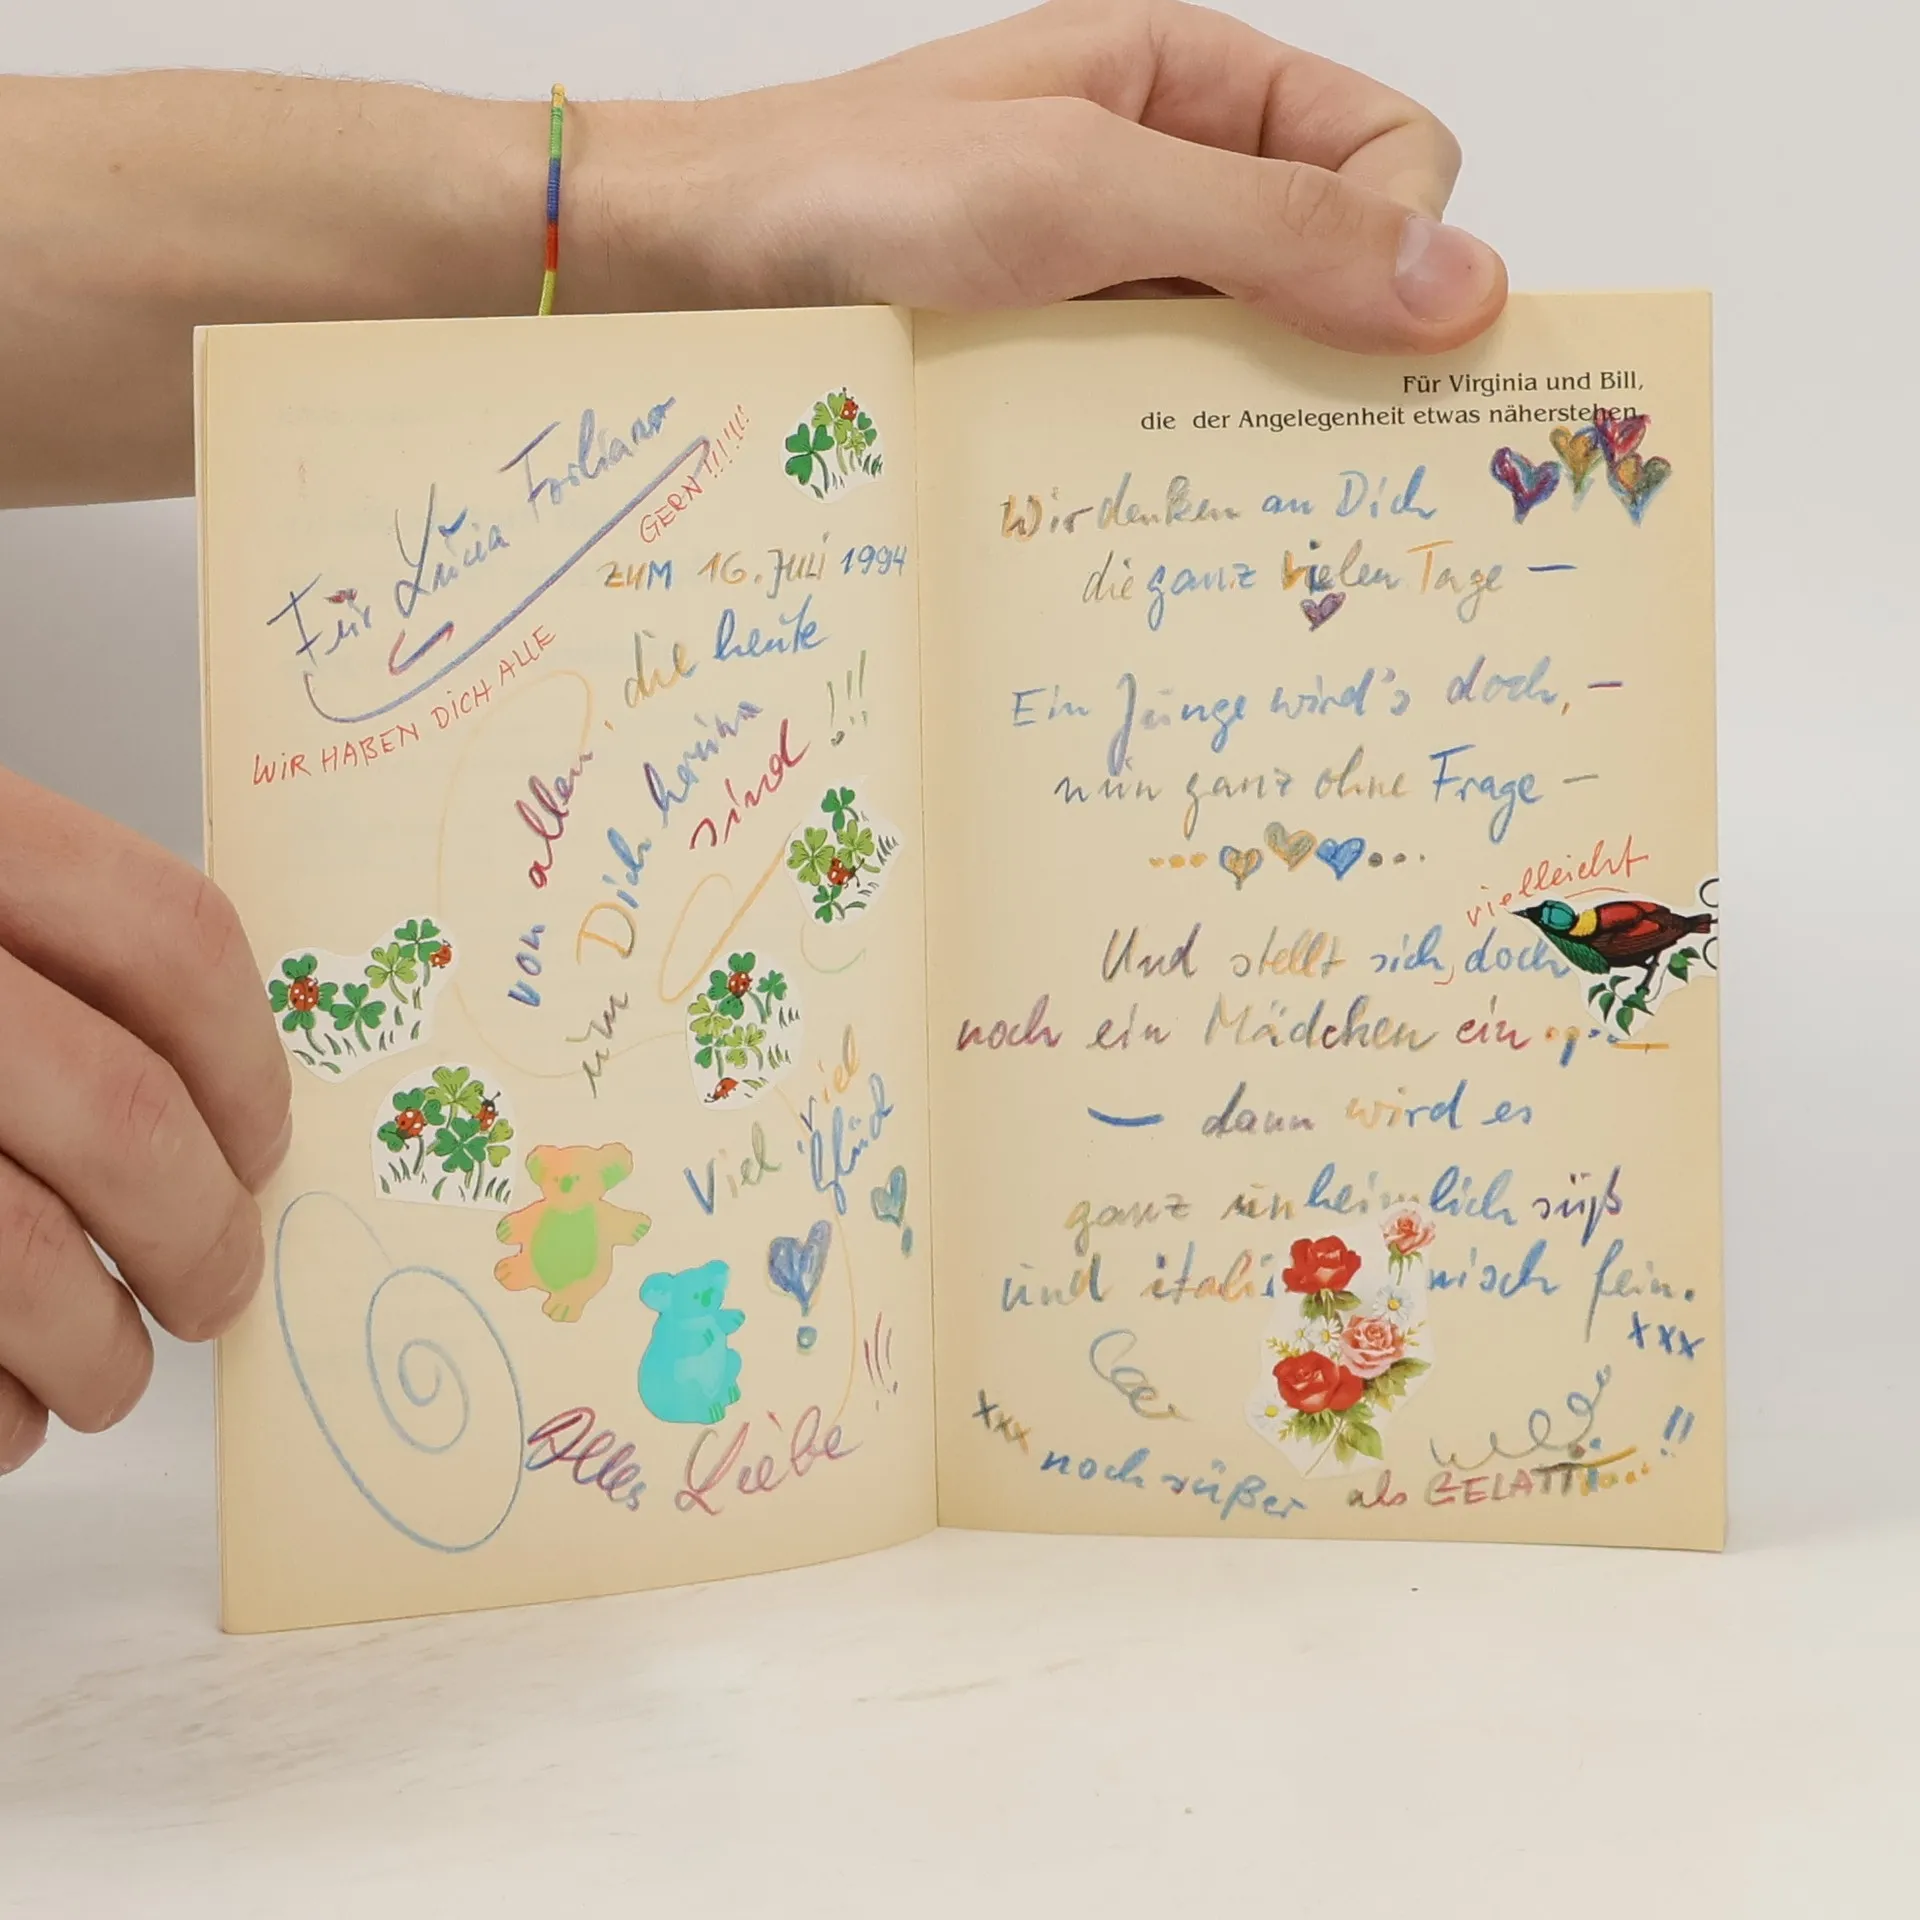 Für Lucia
WIR HABEN DICH ALLE
GERN!!!!!!
ZUM 16. JULI 1994
von allen, die heute
um Dich herum
sind !!!
Viel viel
Glück
Alles Liebe !!!
Für Virginia und Bill,
die der Angelegenheit etwas näherstehen.
Wir denken an Dich
die ganz vielen Tage —
Ein Junge wird's doch, —
nun ganz ohne Frage —
vielleicht
Und stellt sich, doch
noch ein Mädchen ein
— dann wird es
ganz unheimlich süß
und italienisch fein.
xxx
xxx noch süßer als GELATTI !!